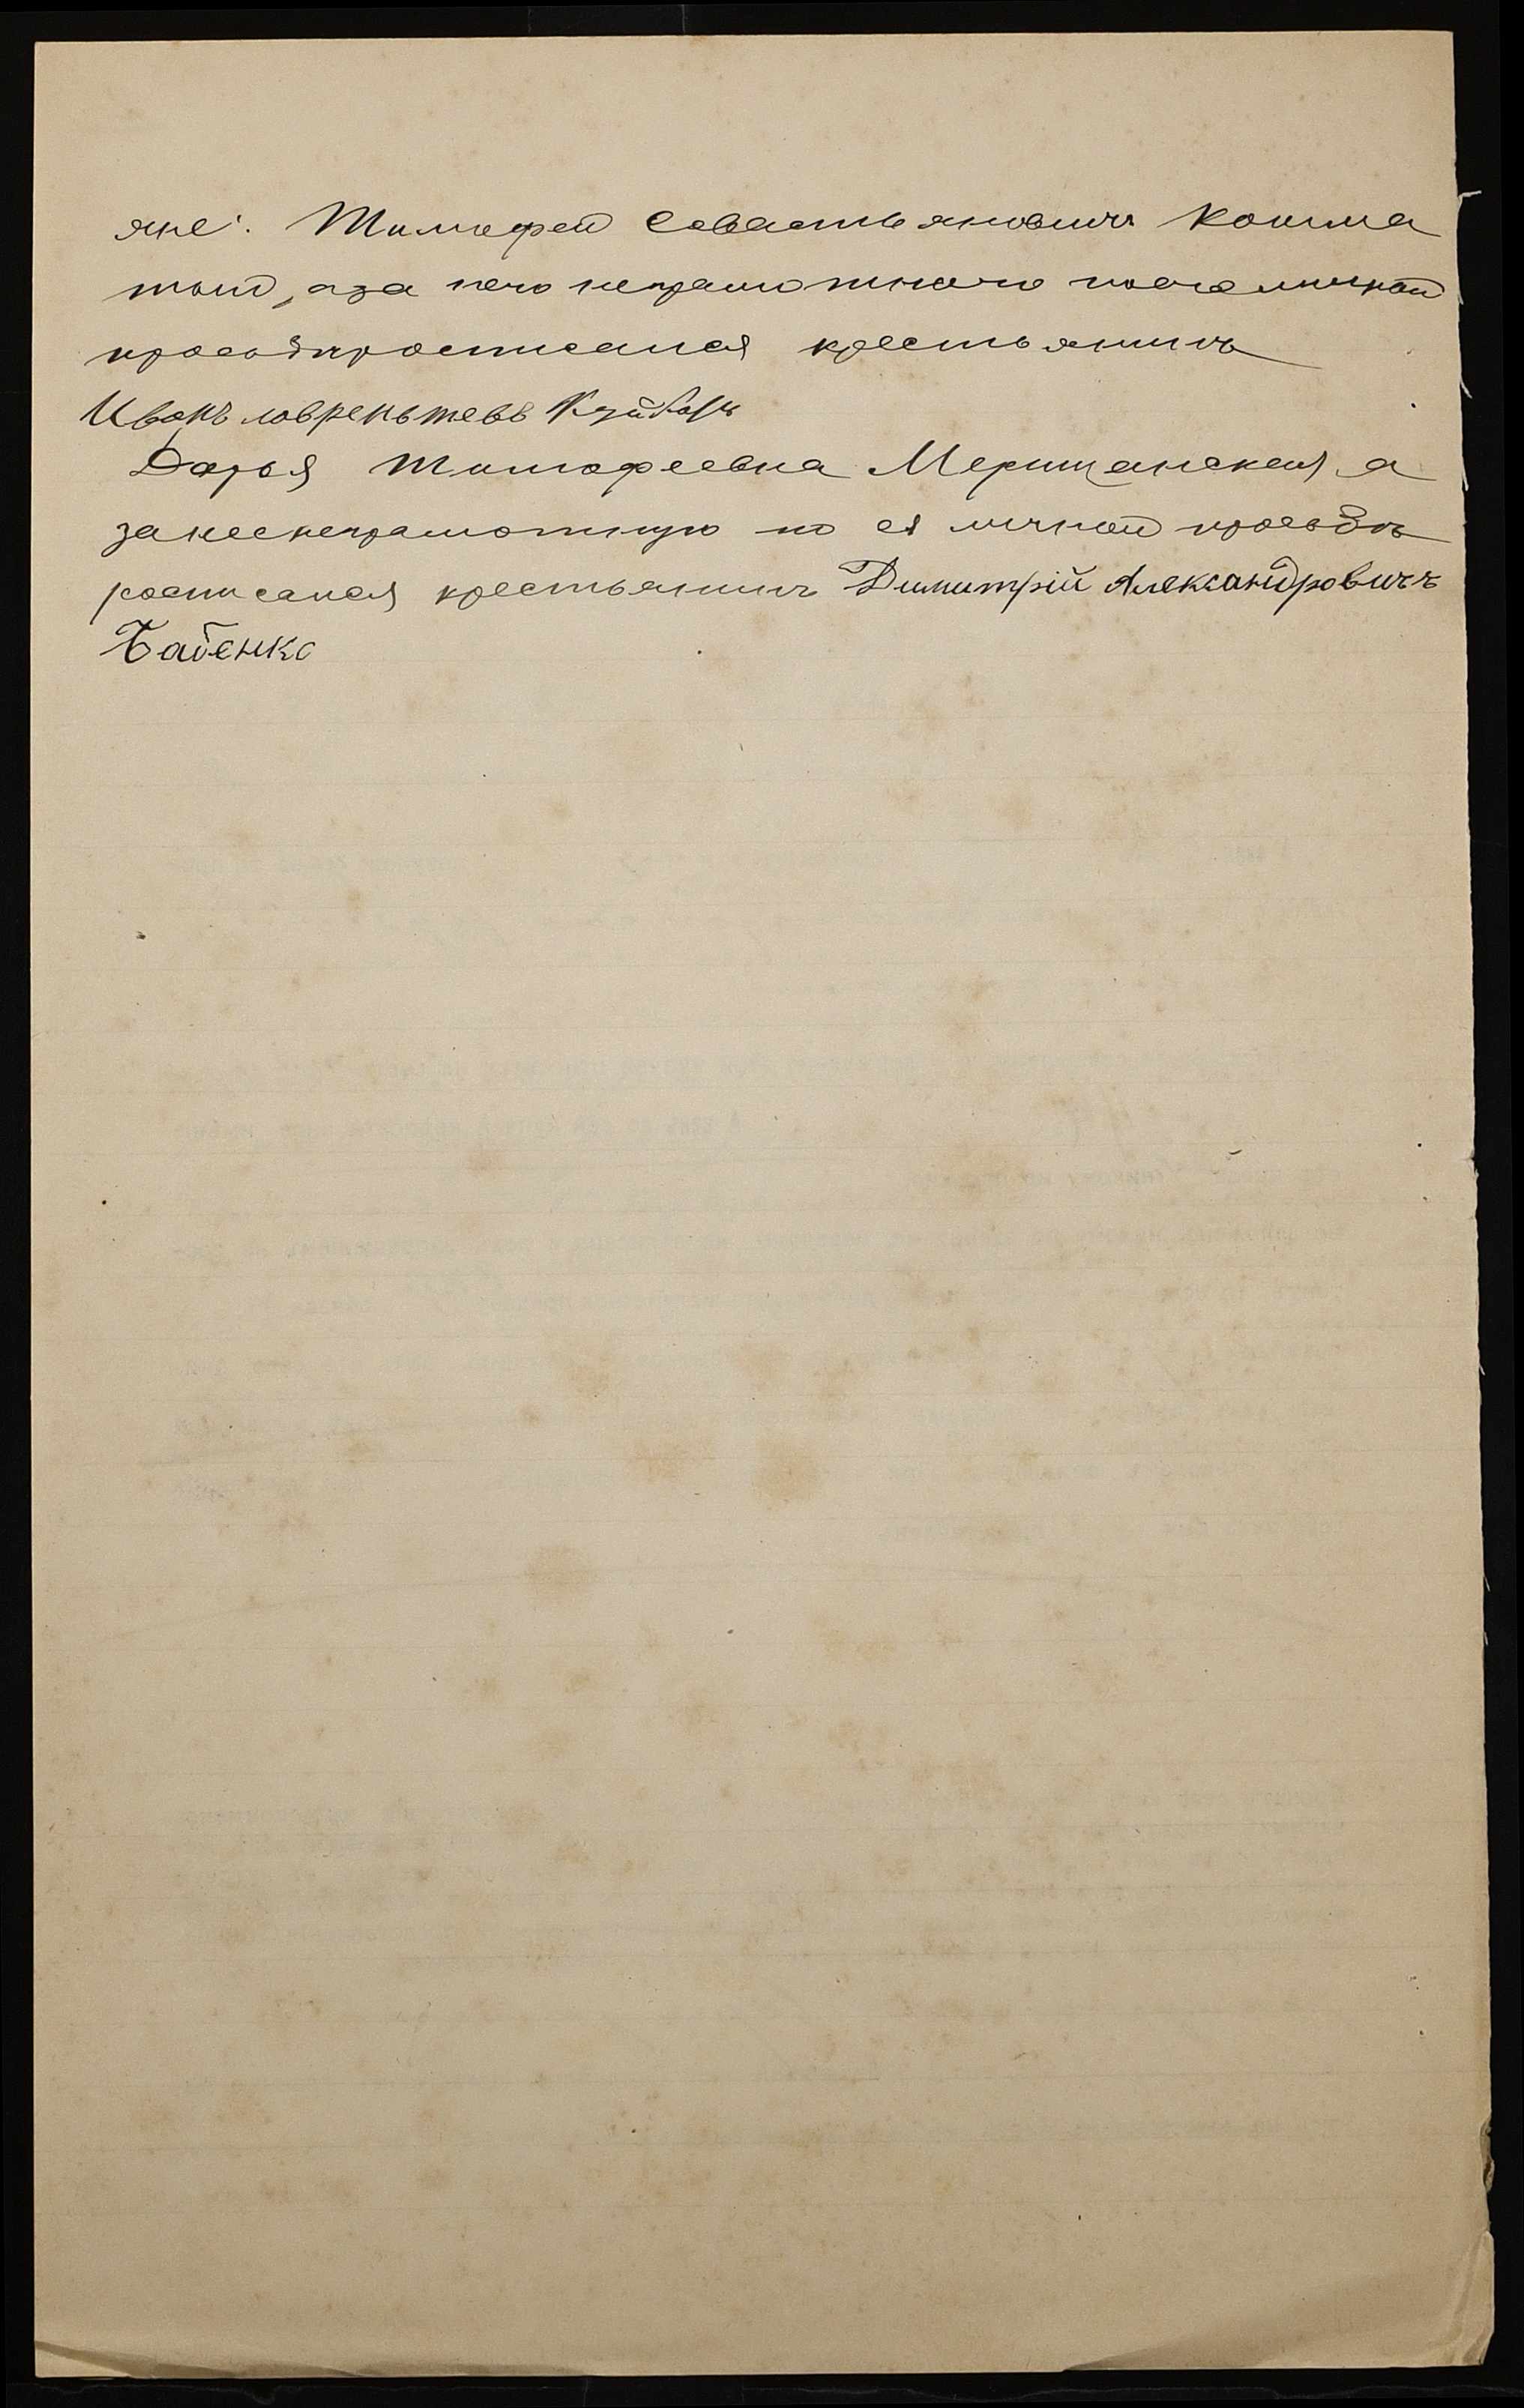 яне: Тимофей Севастьяновичъ Кошма
тый, а за него неграмотнаго по его личной
просьбѣ росписался крестьянинъ
Иванъ лаврентьевъ
Дарья Тимофеевна Мерщанская, а
за нее неграмотную по ея личной просьбѣ
росписался крестьянинъ Димитрій Александровичъ
Бабенко